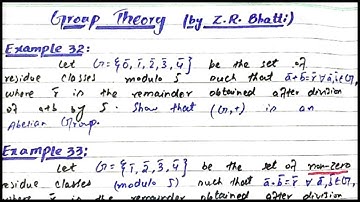 Group Theory (by Z.R. Bhatti)
Example 32:
Let G = {0̄, 1̄, 2̄, 3̄, 4̄} be the set of
residue classes modulo 5 such that ā+b̄=r̄ ∀ ā,b̄∈G,
where r̄ is the remainder obtained after division
of a+b by 5. Show that (G,+) is an
Abelian Group.
Example 33:
Let G = {1̄, 2̄, 3̄, 4̄} be the set of non-zero
residue classes (modulo 5) such that ā·b̄=r̄ ∀ ā,b̄∈G,
where r̄ is the remainder obtained after division